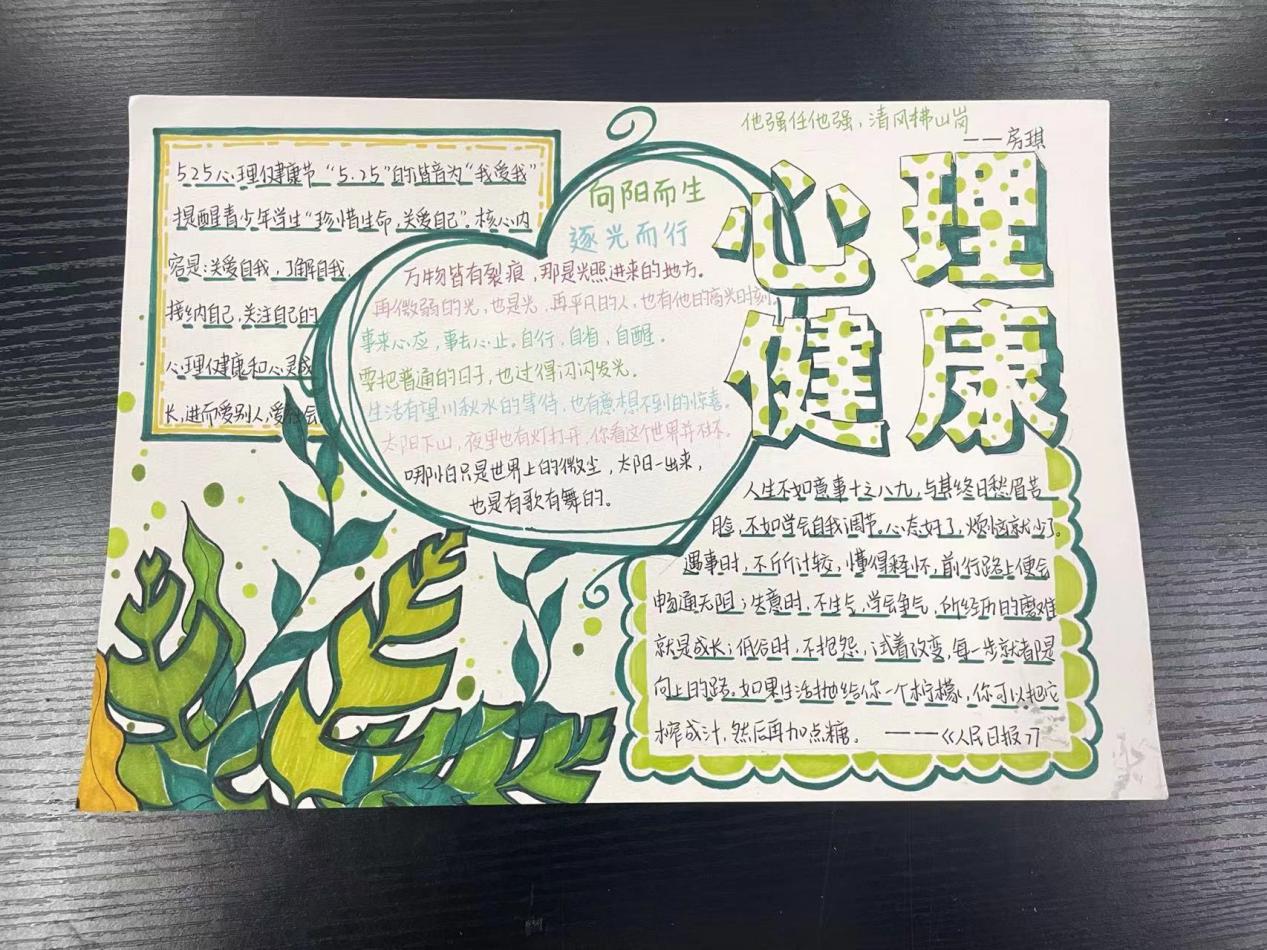 他强任他强，清风拂山岗
——房琪
心理
健康
525心理健康节“5.25”的谐音为“我爱我”
提醒青少年学生“珍惜生命，关爱自己”。核心内
容是：关爱自我，了解自我，
接纳自己，关注自己的
心理健康和心灵成
长，进而爱别人，爱社会
向阳而生
逐光而行
万物皆有裂痕，那是光照进来的地方。
再微弱的光，也是光，再平凡的人，也有他的高光时刻。
事来心应，事去心止。自行，自省，自醒。
要把普通的日子，也过得闪闪发光。
生活有望川秋水的等待，也有意想不到的惊喜。
太阳下山，夜里也有灯打开，你看这个世界并不坏。
哪怕只是世界上的微尘，太阳一出来，
也是有歌有舞的。
人生不如意事十之八九，与其终日愁眉苦
脸，不如学会自我调节。心态好了，烦恼就少了。
遇事时，不斤斤计较，懂得释怀，前行路上便会
畅通无阻；失意时，不生气，学会争气，所经历的磨难
就是成长；低谷时，不抱怨，试着改变，每一步就都是
向上的路。如果生活抛给你一个柠檬，你可以把它
榨成汁，然后再加点糖。 ———《人民日报》